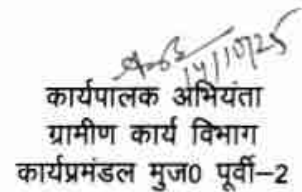 14/10/25
कार्यपालक अभियंता
ग्रामीण कार्य विभाग
कार्यप्रमंडल मुज0 पूर्वी–2